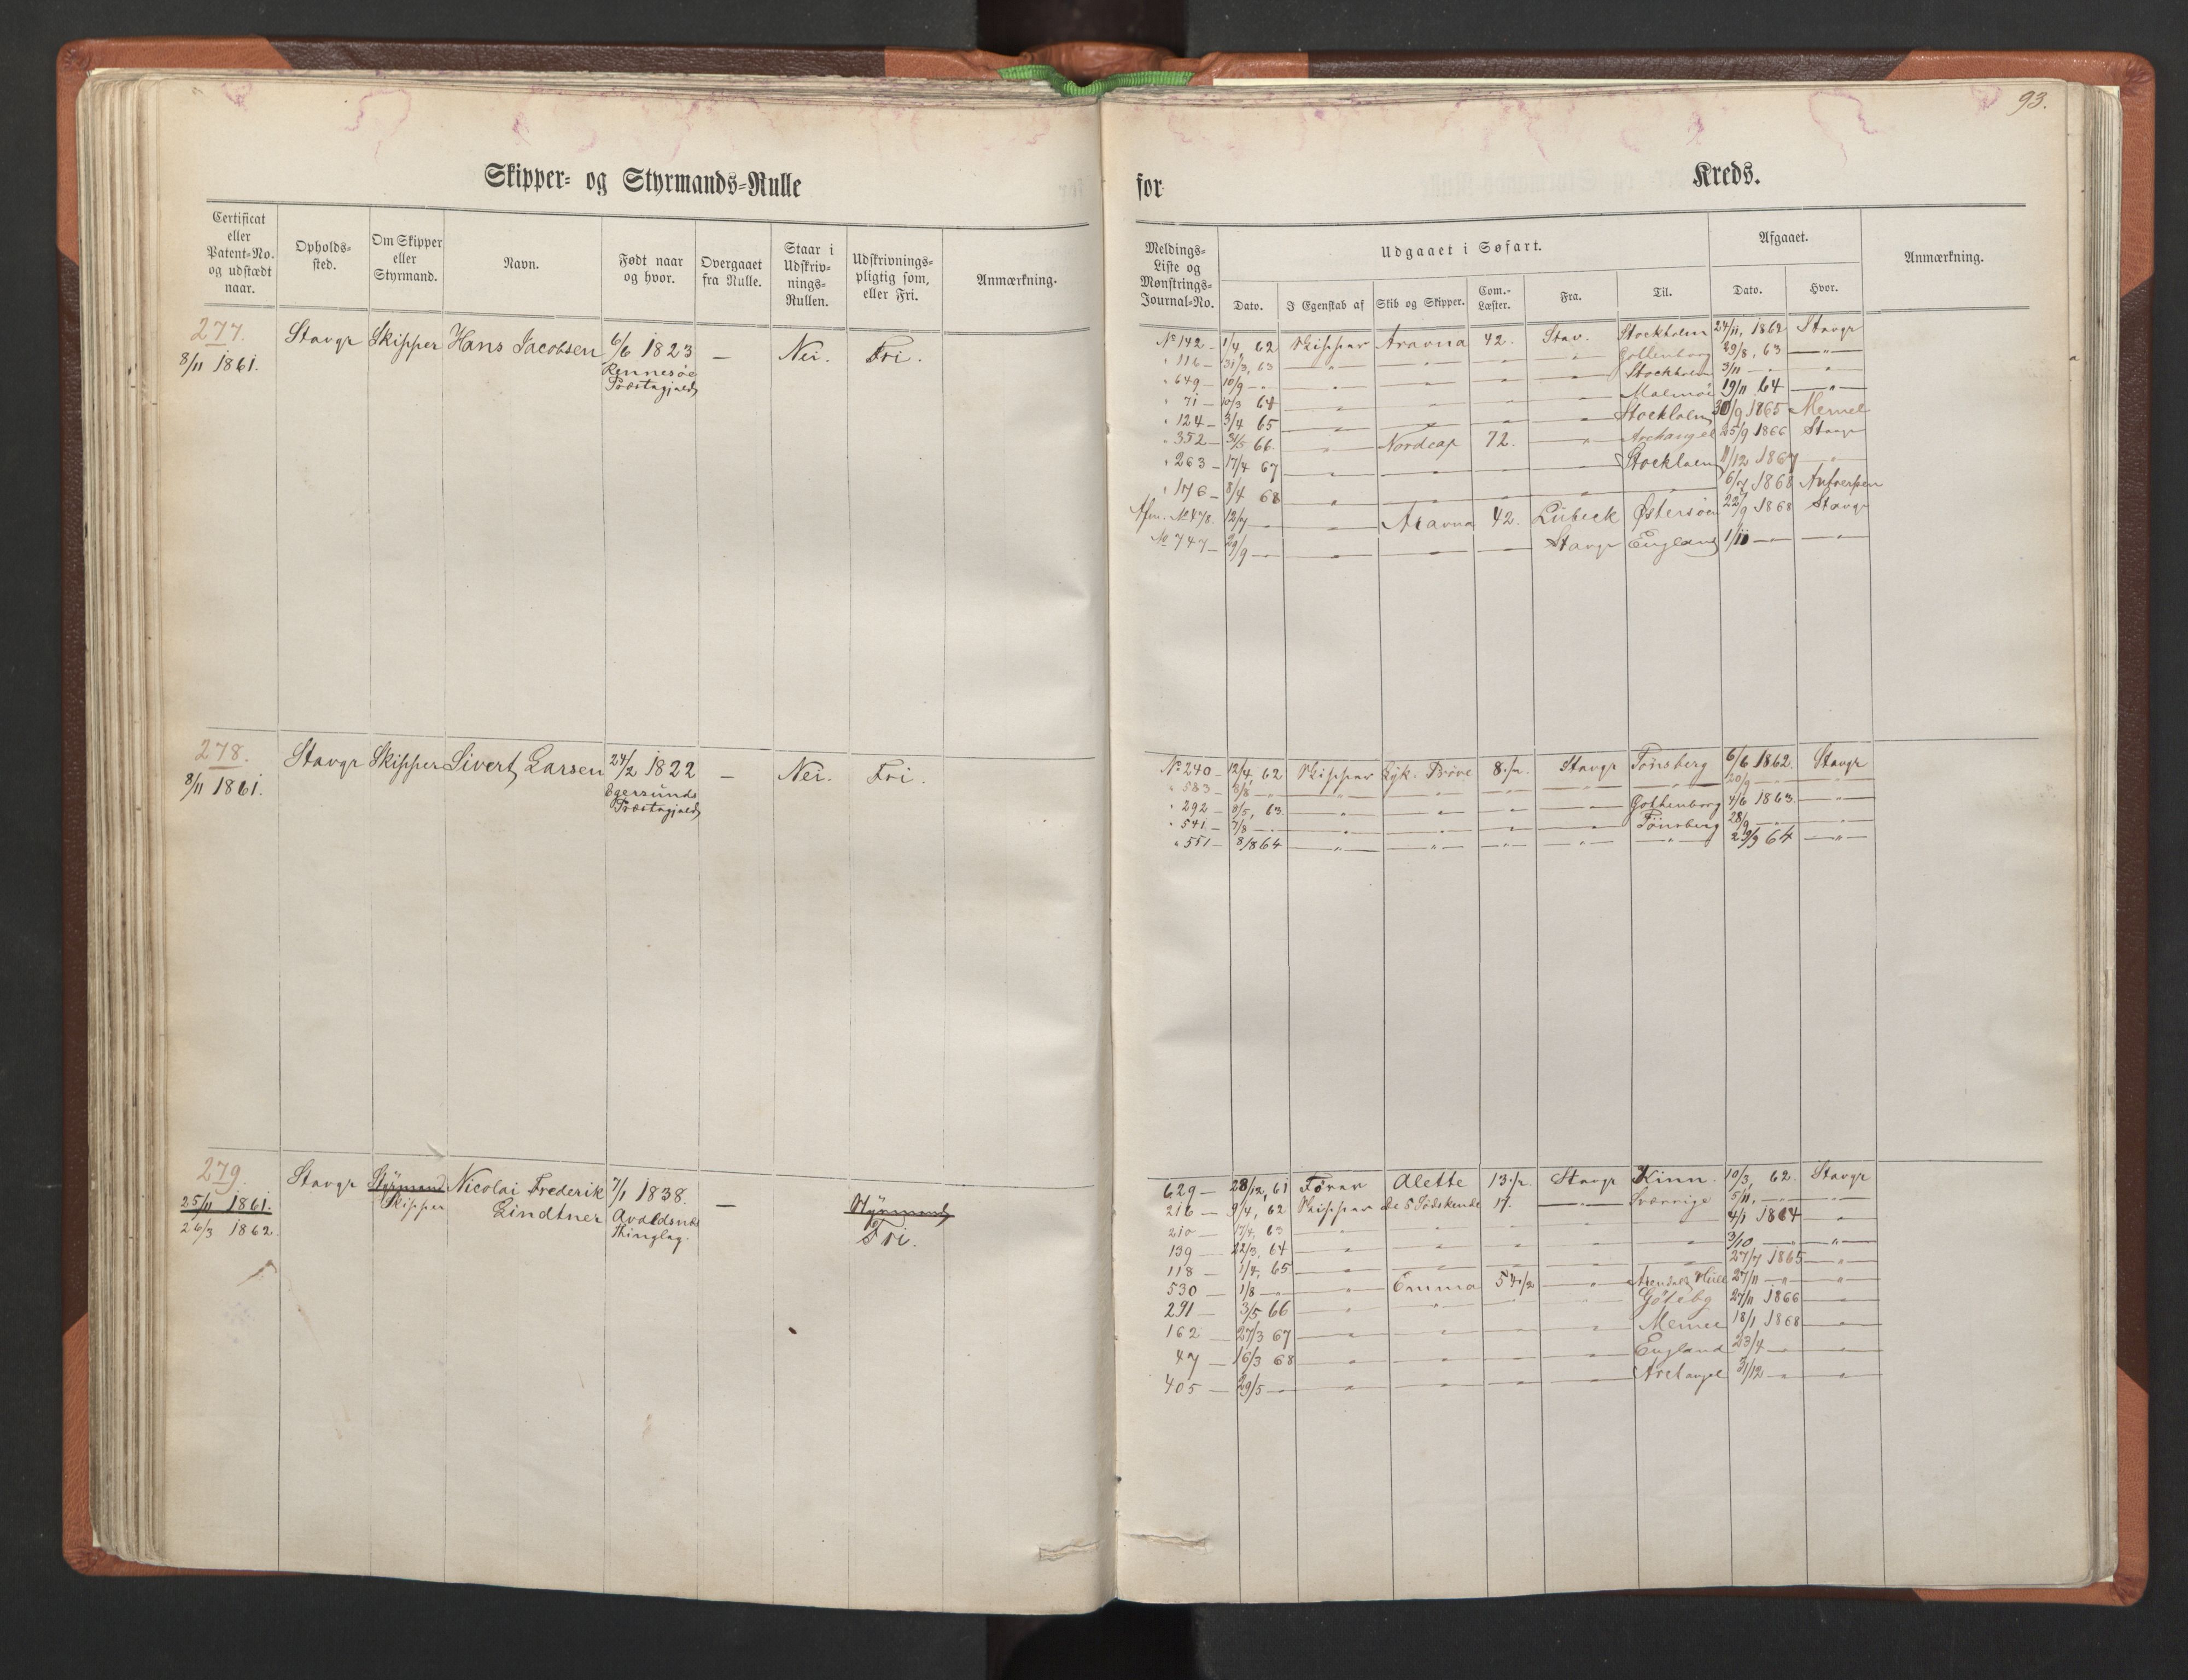 93.
Skipper- og Styrmands-Rulle for Kreds.
Certificat eller Patent-No. og udstædt naar.
Opholds-sted.
Om Skipper eller Styrmand.
Navn.
Født naar og hvor.
Overgaaet fra Rulle.
Staar i Udskriv-nings-Rullen.
Udskrivnings-pligtig som, eller Fri.
Anmærkning.
Meldings-Liste og Mønstrings-Journal-No.
Udgaaet i Søfart.
Dato.
I Egenskab af
Skib og Skipper.
Com.-Læster.
Fra.
Til.
Afgaaet.
Dato.
Hvor.
Anmærkning.
277. Stavgr Skipper Hans Jacobsen 6/6 1823 — Nei. Fri.
8/11 1861. Rennesøe
Præstegjeld
No 142 - 1/4 62 Skipper Aravna 42. Stav. Stockholm 24/11, 1862 Stavgr
" 116 - 31/3, 63 " " " " Gothenborg 29/8, 63 "
" 649 - 10/9 - " " " " " Stockholm 3/11 — "
" 71 - 10/3 64 " " " " Malmöe 19/11 64 "
" 124 - 3/4 65 " " " " Stockholm 30/9 1865 Memel
" 352 - 31/5 66 " Nordcap 72. " Archangel 25/9 1866 Stavgr
" 263 - 17/4 67 " " " " Stockholm 11/12 1867 "
" 176 - 8/4 68 " " " " " 6/7 1868 Antverpen
No 478. 12/7 — " Aravna 42. Lübeck Østersøen 22/9 1868 Stavgr
No 747 - 29/9 — " " — Stavgr England 1/11 — "
278. Stavgr Skipper Sivert Larsen 24/2 1822 — Nei. Fri.
8/11 1861. Egersunds
Præstegjeld
No 240 - 12/4, 62 Skipper Prøve 8 Stavgr Tönsberg 6/6 1862. Stavgr
" 583 - 8/8 — " " " — — 20/9 — "
" 292 - 8/5, 63 " " " " Gothenborg 4/6 1863. "
" 541 - 7/8 — " " " " Tönsberg 28/9 — "
" 551 - 8/8 64 " " " " " 29/9 64 "
279. Stavgr Styrmand Nicolai Frederik 7/1 1838. — Styrmand
25/11 1861. Skipper Lindtner Avaldsnes Fri.
26/3 1862. Thinglag.
629 — 28/12, 61 Fører Alette 13 Stavgr Kinn. 10/3, 62. Stavgr
216 — 9/4, 62 Skipper De 5 Södskende 17. — Sverrige 5/11, — "
210 — 17/4, 63 " " " " " 4/1 1864 "
139 — 22/3, 64 " " " " " 3/10 — "
118 — 1/4, 65 " " " " " 27/7 1865 "
530 — 1/8 — " Emma 54 1/2 " 27/11 — "
291 — 3/5 66 " " " " Göteby 27/11 1866 "
162 — 27/3 67 " " " " Memel 18/1 1868 "
47 — 16/3 68 " " " " England 23/4 — "
405 — 29/5 — " " " " Archangel 31/12 — "